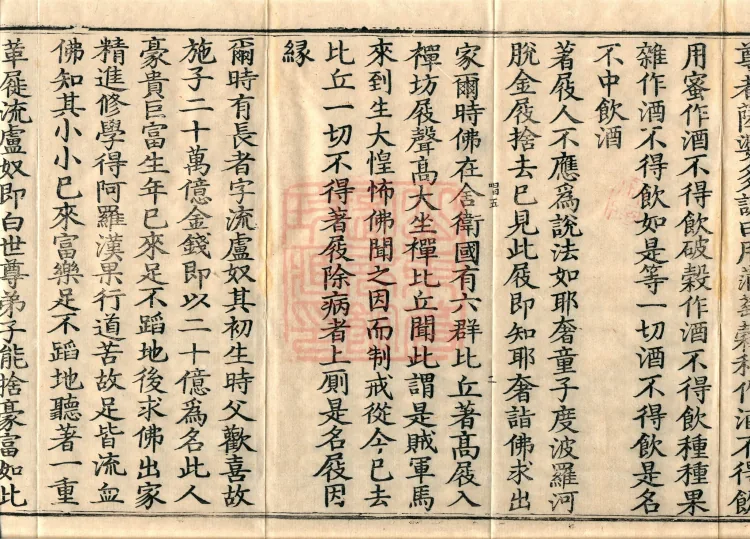 尊者薩婆多說曰用酒作酒不得飲
用蜜作酒不得飲破穀作酒不得飲種種果
雜作酒不得飲如是等一切酒不得飲是名
不中飲酒
著屐人不應爲說法如耶奢童子度波羅河
脫金屐捨去已見此屐即知耶奢詣佛求出
唱五 二
家爾時佛在舍衛國有六群比丘著高屐入
禪坊屐聲高大坐禪比丘聞此謂是賊軍馬
來到生大惶怖佛聞之因而制戒從今已去
比丘一切不得著屐除病者上厠是名屐因
縁
爾時有長者字流盧奴其初生時父歡喜故
施子二十萬億金錢即以二十億爲名此人
豪貴巨富生年已來足不蹈地後求佛出家
精進修學得阿羅漢果行道苦故足皆流血
佛知其小小已來富樂足不蹈地聽著一重
革屣流盧奴即白世尊弟子能捨豪富如此